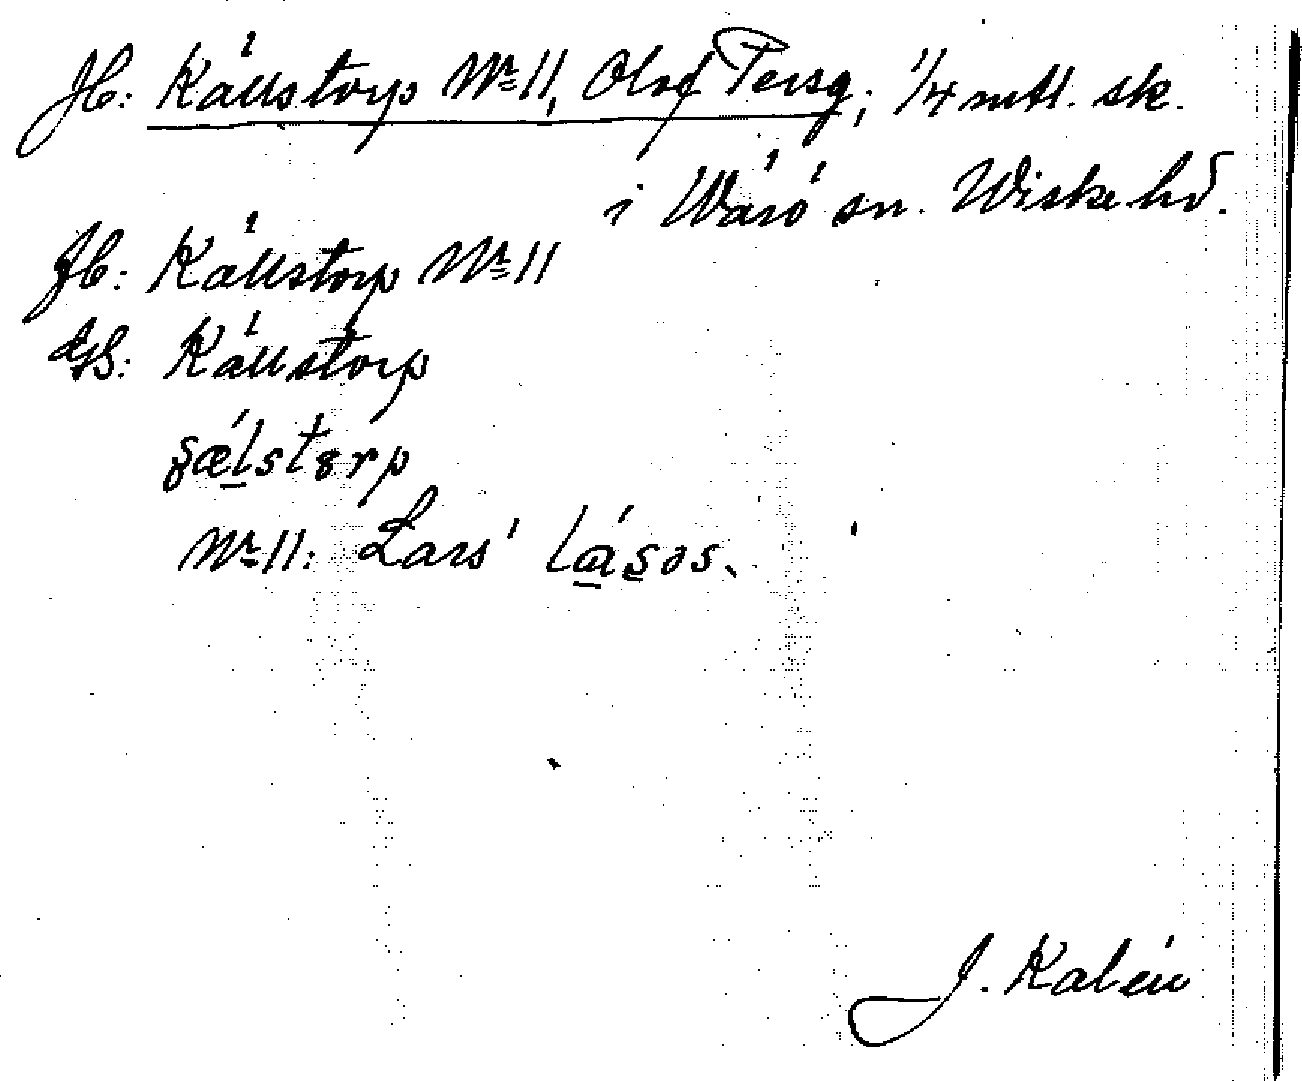 Jb: Källstorp No 11, Olof Persg; 1/4 mtl. sk.
i Wärö sn. Wiske hd.
Jb: Källstorp No 11
GS: Källstorp
No 11: Lars'
J. Kalén